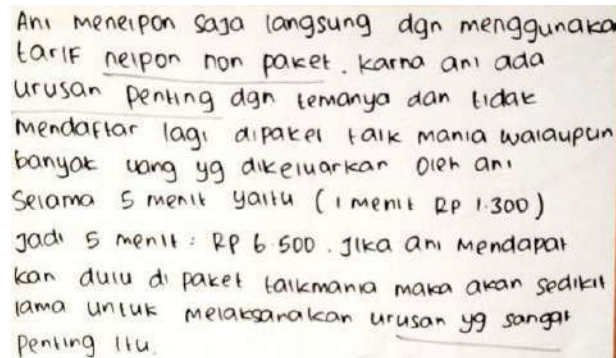 Ani menelpon saja langsung dgn menggunaka
tarif nelpon non paket. karna ani ada
urusan penting dgn temanya dan tidak
mendaftar lagi dipaket talk mania walaupun
banyak uang yg dikeluarkan oleh ani
Selama 5 menit yaitu (1 menit RP 1.300)
jadi 5 menit : RP 6.500. Jika ani mendapat
kan dulu di paket talkmania maka akan sedikit
lama untuk melaksanakan urusan yg sangat
penting itu.